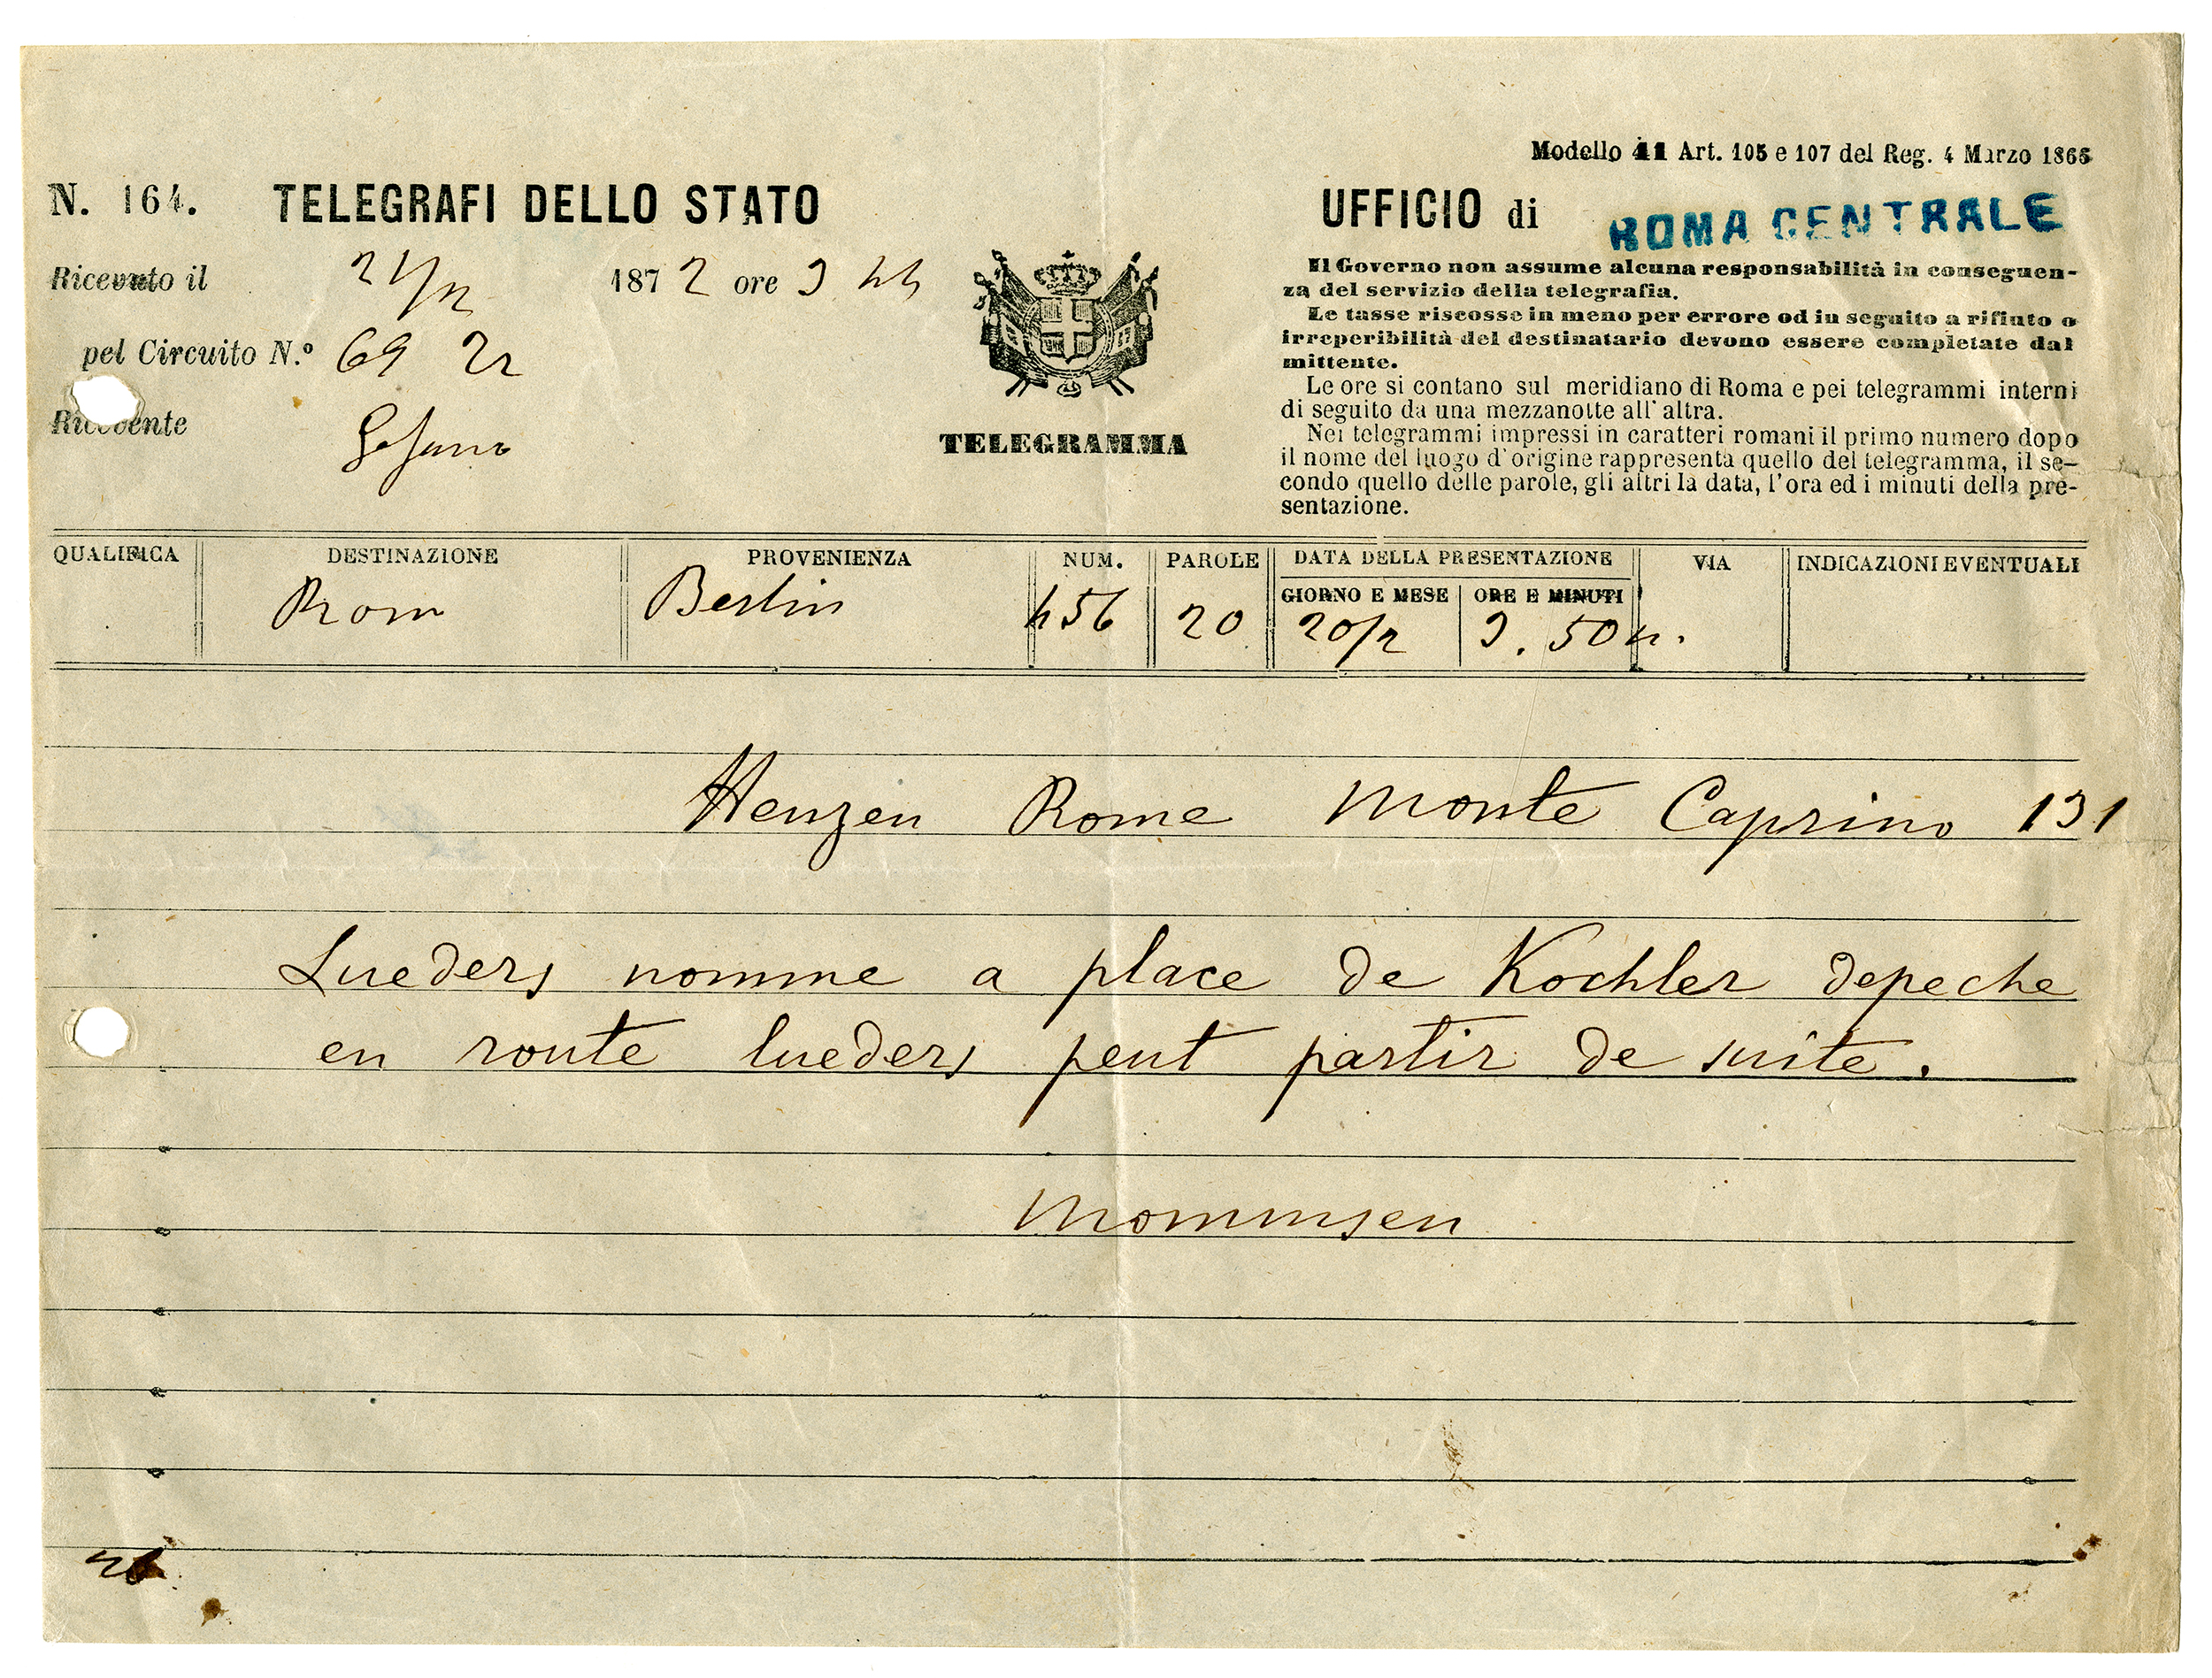 Modello 41 Art. 105 e 107 del Reg. 4 Marzo 1865
N. 164. TELEGRAFI DELLO STATO
UFFICIO di ROMA CENTRALE
Ricevuto il 21/2 1872 ore 9
pel Circuito N.º 69
Ricevente
TELEGRAMMA
Il Governo non assume alcuna responsabilità in conseguen-
za del servizio della telegrafia.
Le tasse riscosse in meno per errore od in seguito a rifiuto o
irreperibilità del destinatario devono essere completate dal
mittente.
Le ore si contano sul meridiano di Roma e pei telegrammi interni
di seguito da una mezzanotte all' altra.
Nei telegrammi impressi in caratteri romani il primo numero dopo
il nome del luogo d'origine rappresenta quello del telegramma, il se-
condo quello delle parole, gli altri la data, l'ora ed i minuti della pre-
sentazione.
QUALIFICA DESTINAZIONE PROVENIENZA NUM. PAROLE DATA DELLA PRESENTAZIONE VIA INDICAZIONI EVENTUALI
GIORNO E MESE ORE E MINUTI
Rom Berlin 456 20 20/2 9. 50 n.
Henzen Rome Monte Caprino 131
Lueders nomme a place de Kochler depeche
en route lueders peut partir de suite.
Mommsen